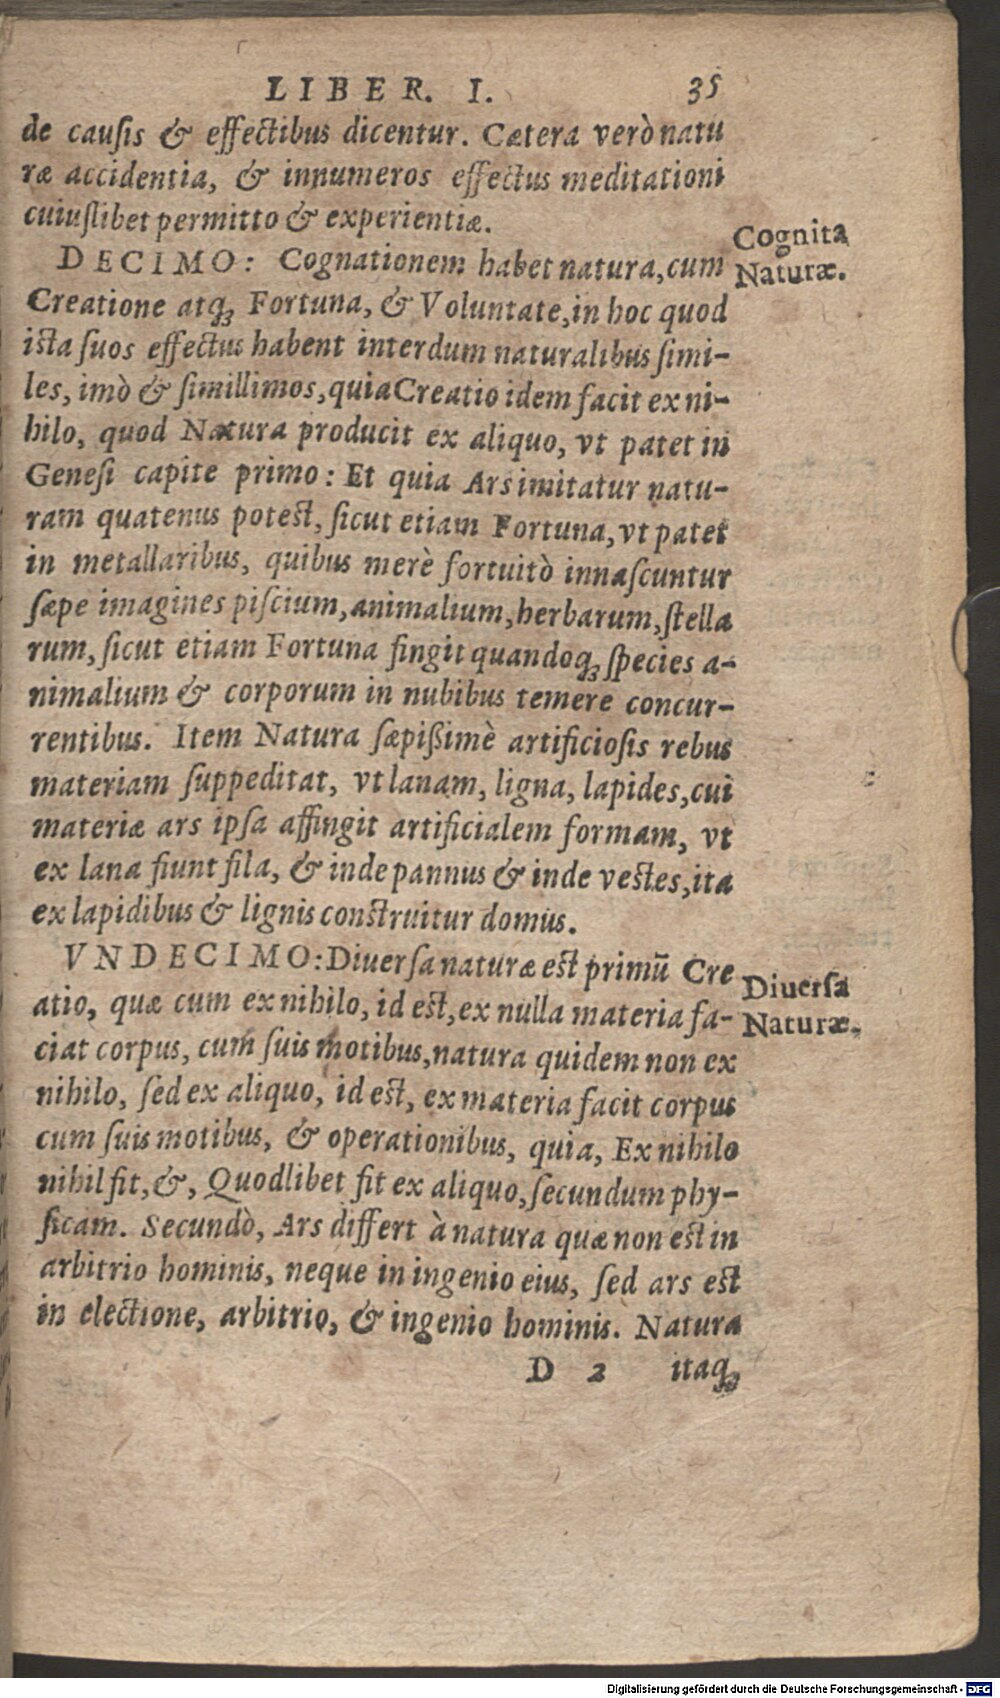 LIBER. I. 35
de cauſis & effectibus dicentur. Cætera verò natu
ræ accidentia, & innumeros effectus meditationi
cuiuſlibet permitto & experientiæ.
DECIMO: Cognationem habet natura, cum
Cognita
Naturæ.
Creatione atqꝫ Fortuna, & Voluntate, in hoc quod
iſta ſuos effectus habent interdum naturalibus ſimi-
les, imò & ſimillimos, quia Creatio idem facit ex ni-
hilo, quod Natura producit ex aliquo, vt patet in
Geneſi capite primo: Et quia Ars imitatur natu-
ram quatenus poteſt, ſicut etiam Fortuna, vt patet
in metallaribus, quibus merè fortuitò innaſcuntur
ſæpe imagines piſcium, animalium, herbarum, ſtella
rum, ſicut etiam Fortuna fingit quandoqꝫ ſpecies a-
nimalium & corporum in nubibus temere concur-
rentibus. Item Natura ſæpißimè artificioſis rebus
materiam ſuppeditat, vt lanam, ligna, lapides, cui
materiæ ars ipſa affingit artificialem formam, vt
ex lana fiunt fila, & inde pannus & inde veſtes, ita
ex lapidibus & lignis conſtruitur domus.
VNDECIMO: Diuerſa naturæ eſt primū Cre
Diuerſa
Naturæ.
atio, quæ cum ex nihilo, id eſt, ex nulla materia fa-
ciat corpus, cum ſuis motibus, natura quidem non ex
nihilo, ſed ex aliquo, id eſt, ex materia facit corpus
cum ſuis motibus, & operationibus, quia, Ex nihilo
nihil fit, &, Quodlibet fit ex aliquo, ſecundum phy-
ſicam. Secundò, Ars differt à natura quæ non eſt in
arbitrio hominis, neque in ingenio eius, ſed ars eſt
in electione, arbitrio, & ingenio hominis. Natura
D 2 itaqꝫ
Digitalisierung gefördert durch die Deutsche Forschungsgemeinschaft - DFG